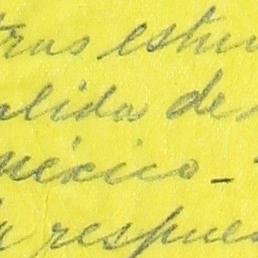 tras estu
alida de
México -
la respues